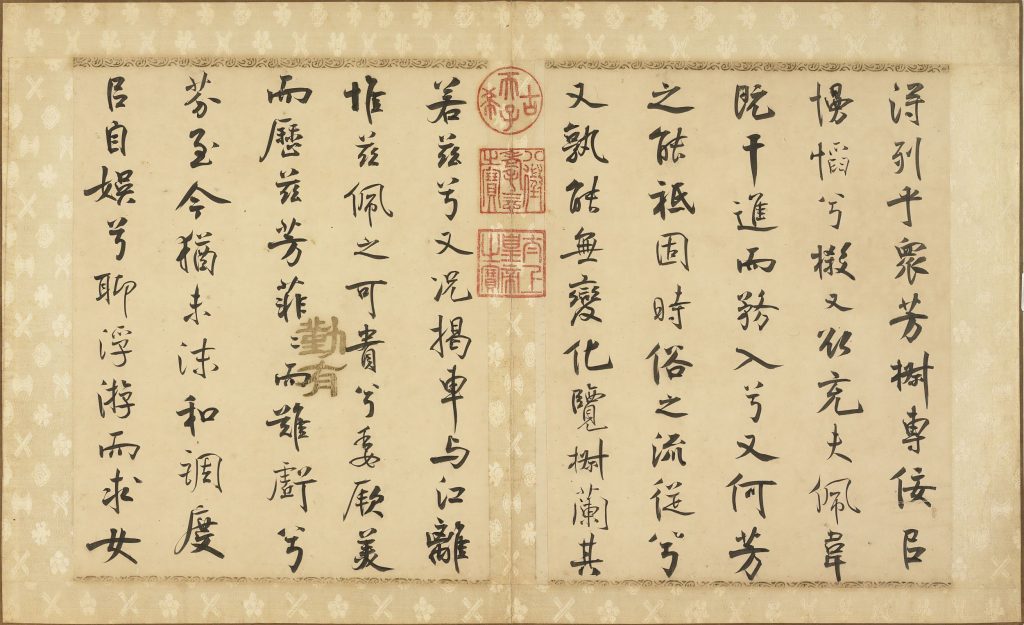 得列乎衆芳椒專佞㠯
慢慆兮樧又欲充夫佩韋
既干進而務入兮又何芳
之能祗固時俗之流從兮
又孰能無變化覽椒蘭其
古希天子
八徵耄念之寶
太上皇帝之寶
若茲兮又況揭車与江離
惟茲佩之可貴兮委厥美
而歷茲芳菲〻而難虧兮
勤有
芬至今猶未沬和調度
㠯自娛兮聊浮游而求女